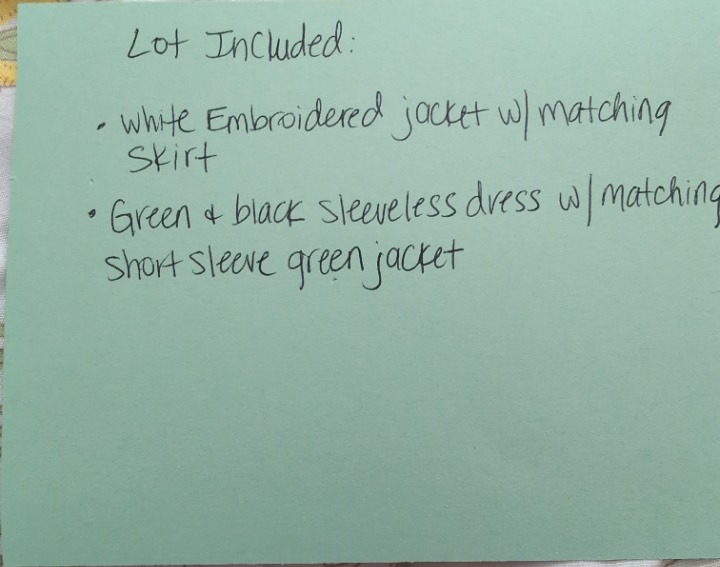 Lot Included:
• White Embroidered jacket w/ matching
Skirt
• Green & black Sleeveless dress w/ matching
Short sleeve green jacket